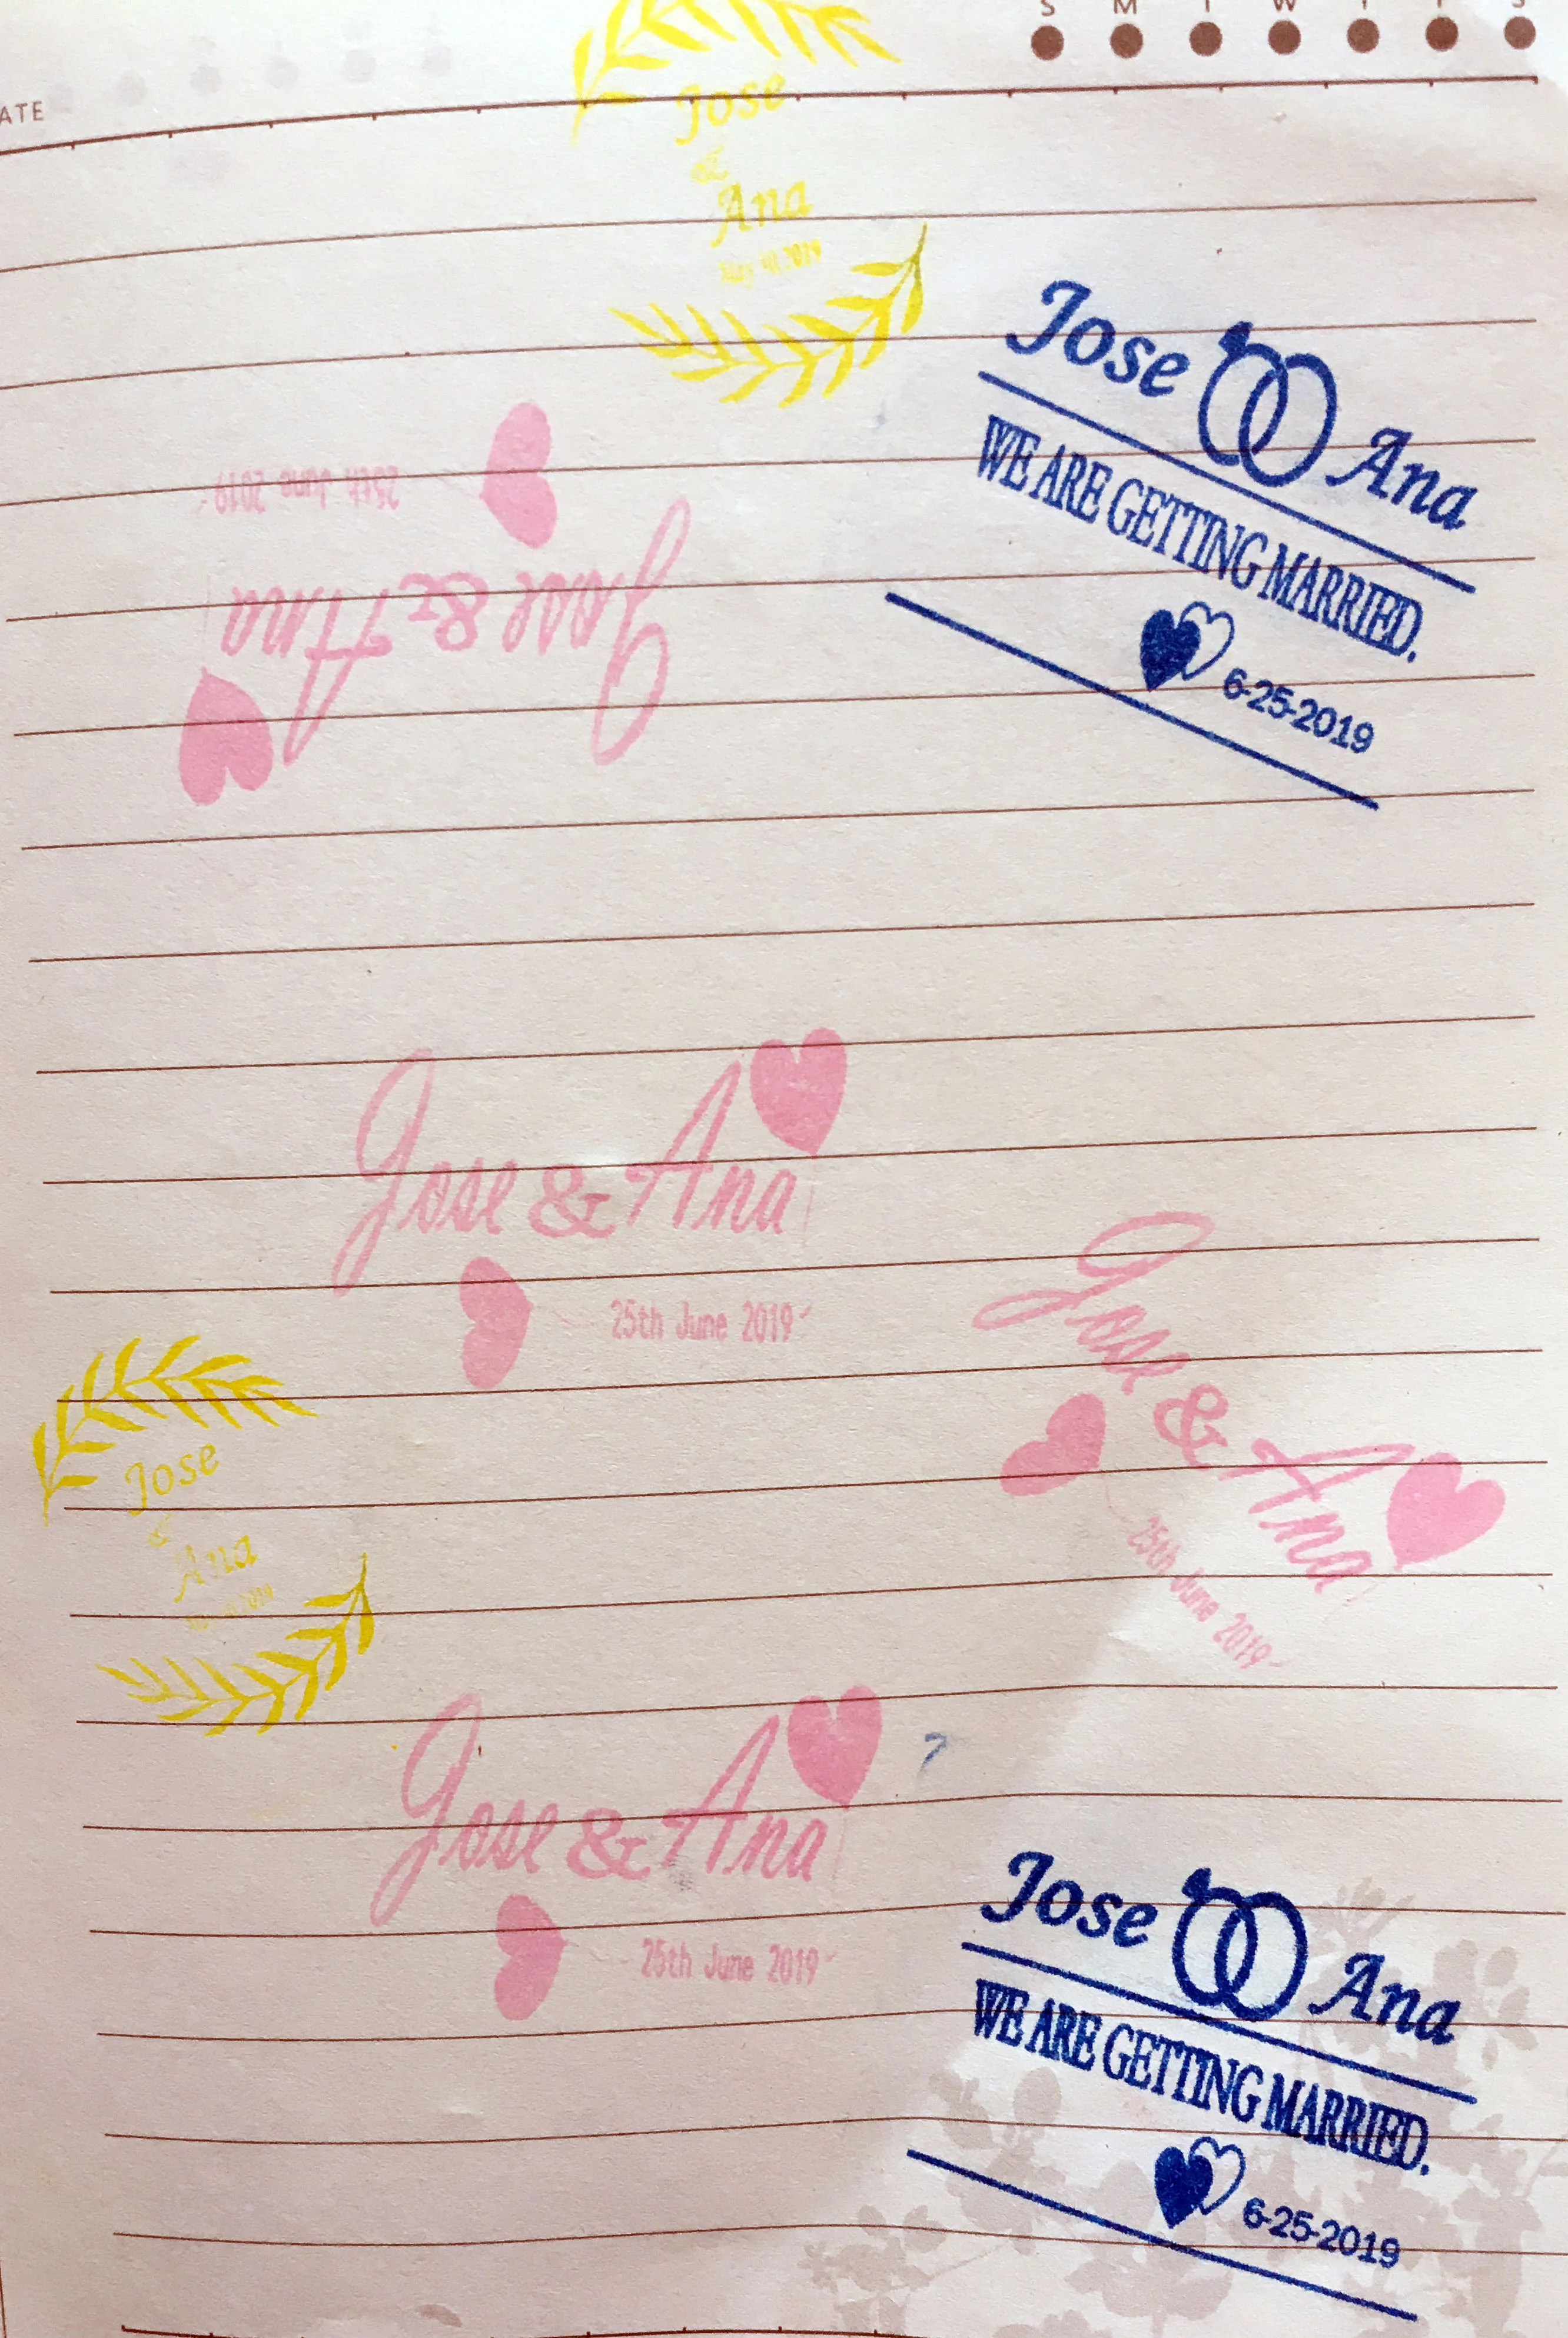 S M T W T F S
ATE
Jose
&
Ana
2019
Jose Ana
WE ARE GETTING MARRIED.
6-25-2019
Jose & Ana
25th June 2019
Jose & Ana
25th June 2019
Jose & Ana
25th June 2019
Jose
&
Ana
2019
Jose & Ana
25th June 2019
Jose Ana
WE ARE GETTING MARRIED.
6-25-2019